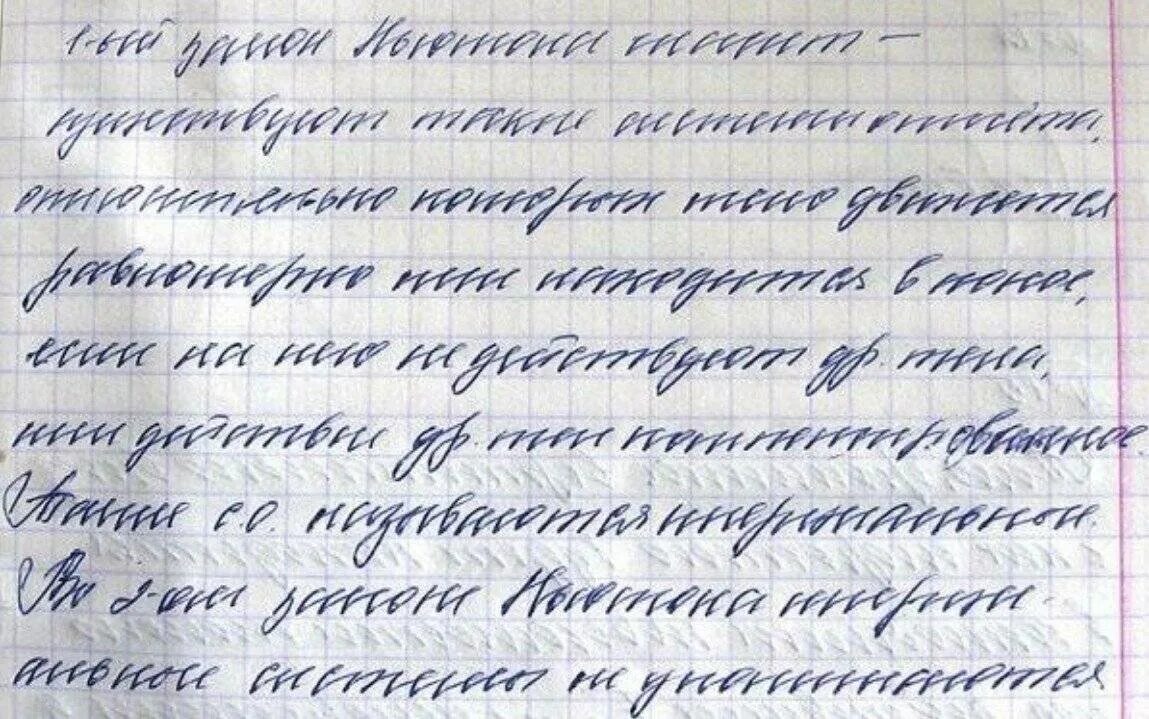 1-ый закон Ньютона гласит –
существуют такие системы отсчёта,
относительно которых тело движется
равномерно или находится в покое,
если на него не действуют др. тела,
или действие др. тел компенсировванное.
Такие с.о. называются инерциальные.
Во 2-ом законе Ньютона инерци-
альные системы не упоминаются